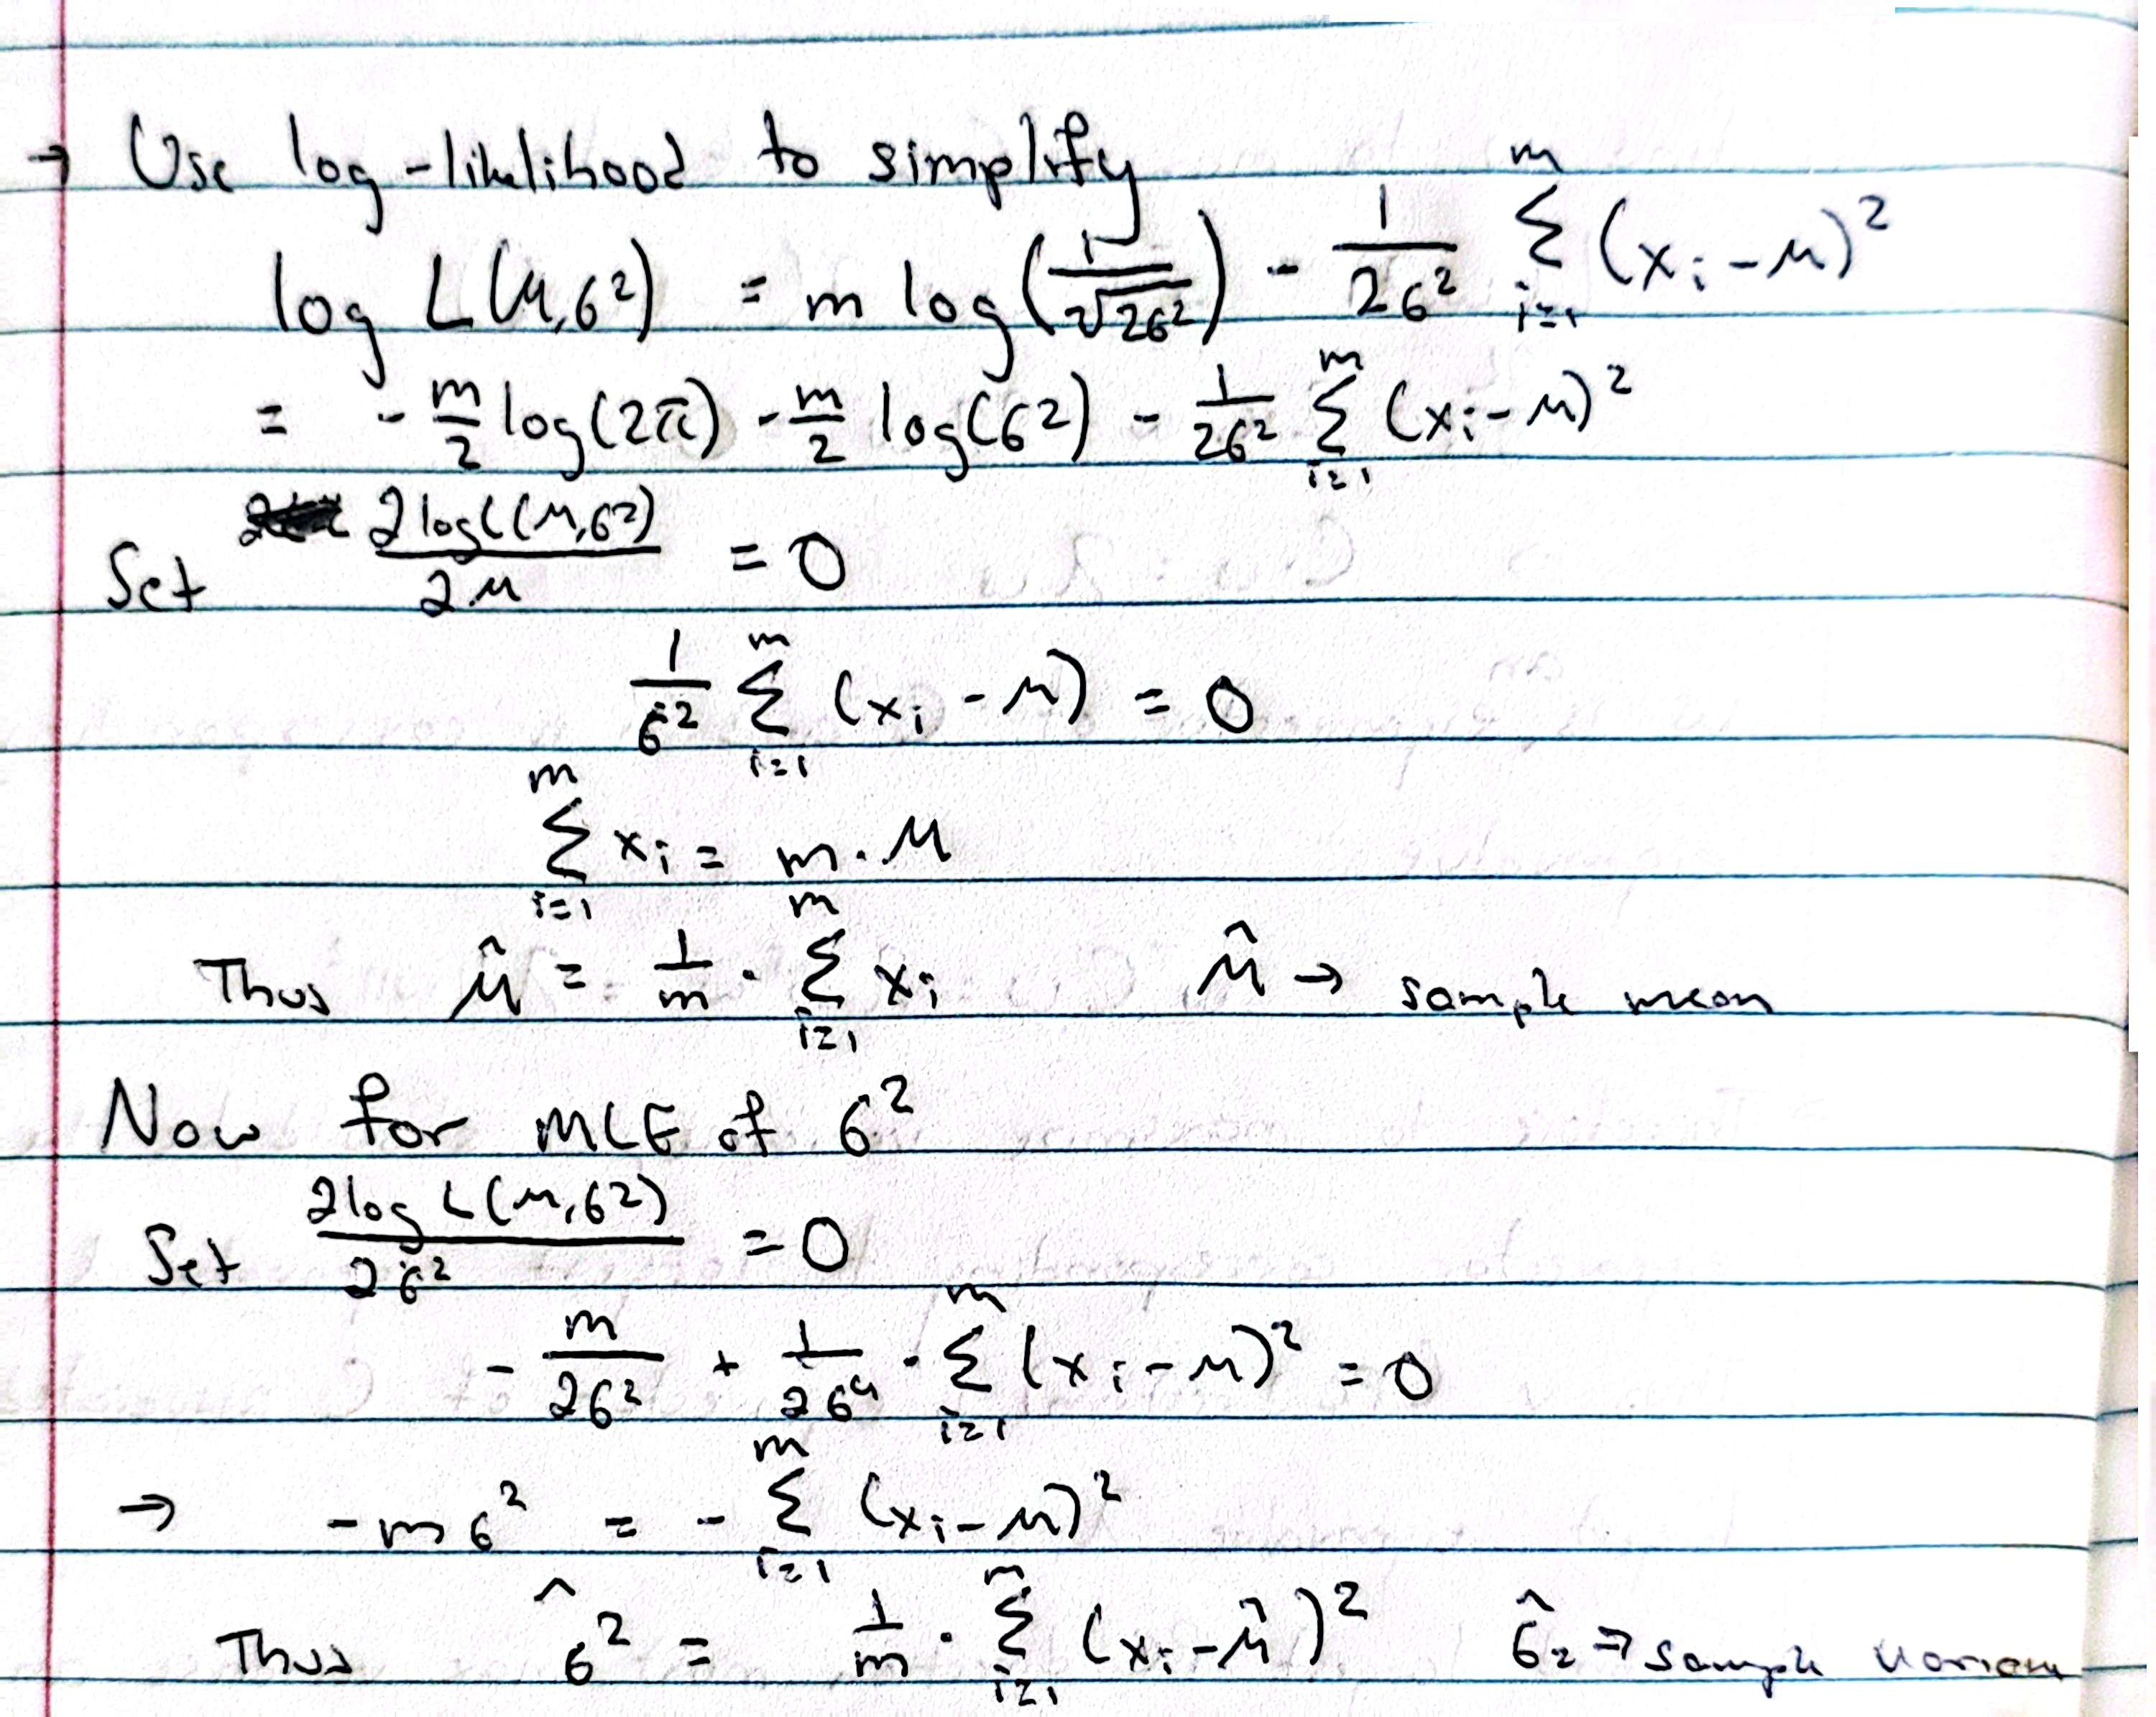 → Use log-likelihood to simplify
log L(μ,σ²) = m log(1/√2σ²) - 1/2σ² Σ_{i=1}^{m} (x_i - μ)²
= - m/2 log(2π) - m/2 log(σ²) - 1/2σ² Σ_{i=1}^{m} (x_i - μ)²
Set ∂log L(μ,σ²)/∂μ = 0
1/σ² Σ_{i=1}^{m} (x_i - μ) = 0
Σ_{i=1}^{m} x_i = m · μ
Thus μ̂ = 1/m · Σ_{i=1}^{m} x_i μ̂ → sample mean
Now for MLE of σ²
Set ∂log L(μ,σ²)/∂σ² = 0
- m/2σ² + 1/2σ⁴ · Σ_{i=1}^{m} (x_i - μ)² = 0
→ -mσ² = - Σ_{i=1}^{m} (x_i - μ)²
Thus σ̂² = 1/m · Σ_{i=1}^{m} (x_i - μ̂)² σ̂₂ ⇒ sample